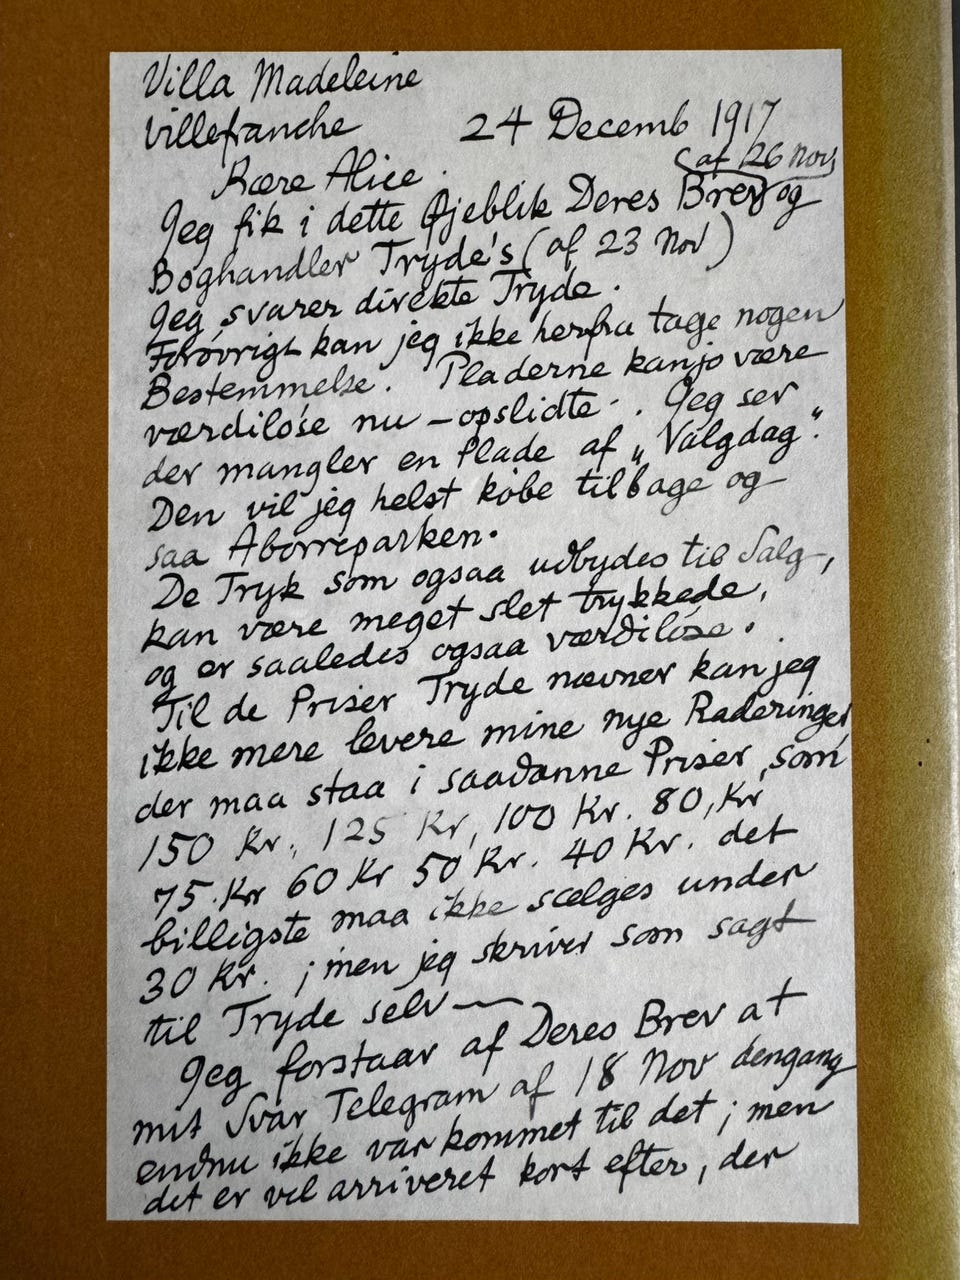 Villa Madeleine
Villefranche 24 Decemb 1917
Kære Alice.
(af 26 Nov)
Jeg fik i dette Øjeblik Deres Brev og
Boghandler Tryde's (af 23 Nov)
Jeg svarer direkte Tryde.
Forøvrigt kan jeg ikke herfra tage nogen
Bestemmelse. Pladerne kan jo være
værdiløse nu – opslidte. Jeg ser
der mangler en Plade af „Valgdag“.
Den vil jeg helst købe tilbage og
saa Aborreparken.
De Tryk som ogsaa udbydes til Salg,
kan være meget slet trykkede,
og er saaledes ogsaa værdiløse.
Til de Priser Tryde nævner kan jeg
ikke mere levere mine nye Raderinger
der maa staa i saadanne Priser, som
150 Kr., 125 Kr, 100 Kr. 80, Kr
75. Kr 60 Kr 50 Kr. 40 Kr. det
billigste maa ikke sælges under
30 Kr. ; men jeg skriver som sagt
til Tryde selv —
Jeg forstaar af Deres Brev at
mit Svar Telegram af 18 Nov dengang
endnu ikke var kommet til det ; men
det er vel arriveret kort efter, der